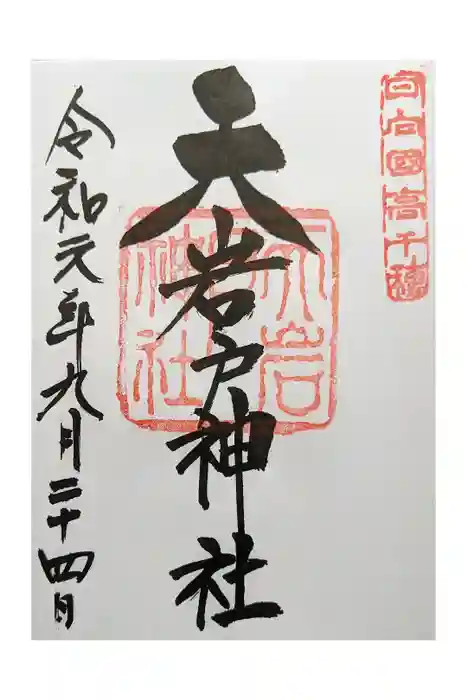 日向國高千穂
天岩戸神社
天岩
神社
令和元年九月二十四日